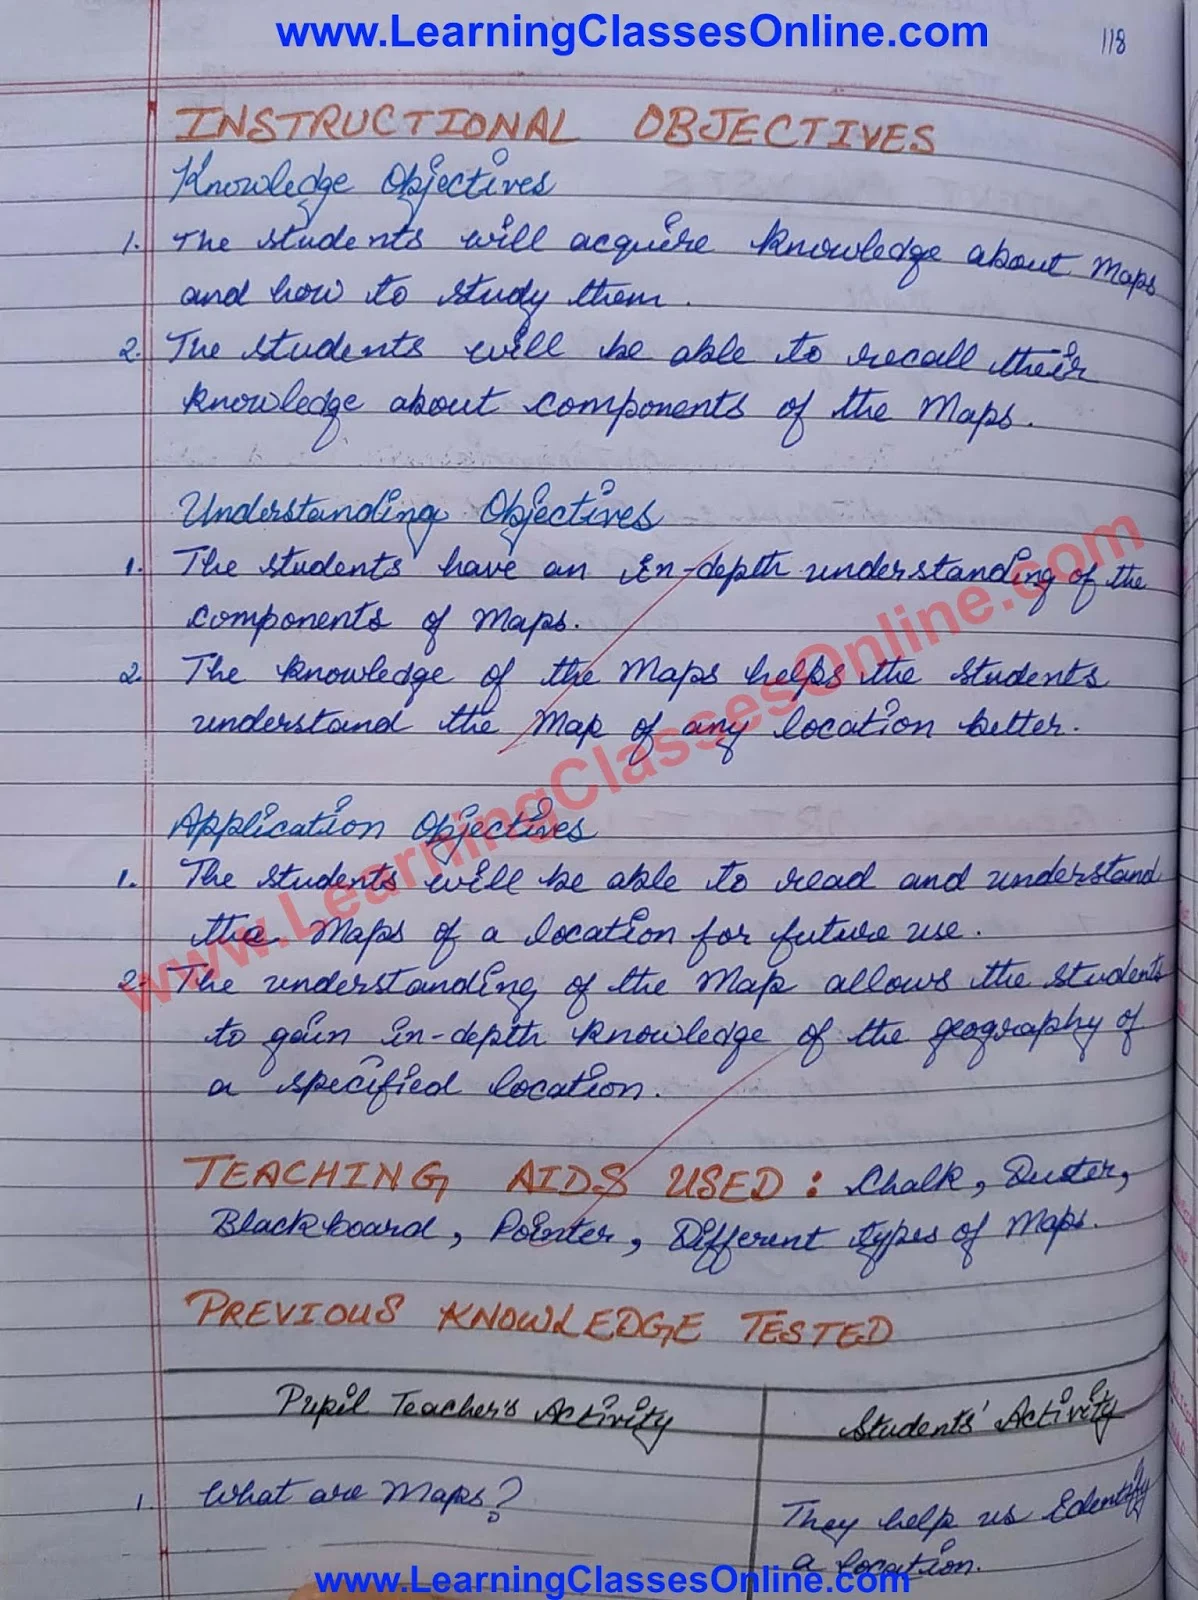 www.LearningClassesOnline.com
118
INSTRUCTIONAL OBJECTIVES
Knowledge Objectives
1. The students will acquire knowledge about Maps
and how to study them.
2. The students will be able to recall their
knowledge about components of the Maps.
Understanding Objectives
1. The students have an In-depth understanding of the
components of Maps.
2. The knowledge of the Maps helps the students
understand the Map of any location better.
Application Objectives
1. The students will be able to read and understand
the Maps of a location for future use.
2. The understanding of the Map allows the students
to gain in-depth knowledge of the geography of
a specified location.
TEACHING AIDS USED : Chalk, Duster,
Blackboard, Pointer, Different types of Maps.
PREVIOUS KNOWLEDGE TESTED
Pupil Teacher's Activity Students' Activity
1. What are Maps? They help us Identify
a location.
www.LearningClassesOnline.com
www.LearningClassesOnline.com